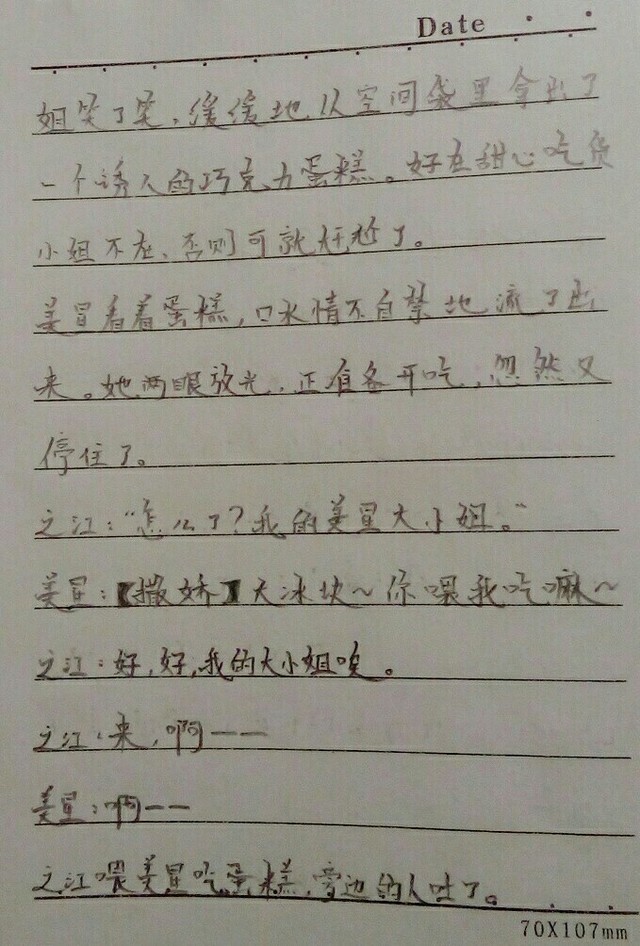 Date
姐笑了笑,缓缓地从空间袋里拿出了
一个诱人的巧克力蛋糕。好在甜心吃货
小姐不在、否则可就尴尬了。
美星看着蛋糕,口水情不自禁地流了出
来。她两眼放光,正准备开吃,忽然又
停住了。
之江:“怎么了?我的美星大小姐。”
美星:【撒娇】大冰块~你喂我吃嘛~
之江:好,好,我的大小姐唉。
之江:来,啊——
美星:啊——
之江喂美星吃蛋糕,旁边的人吐了。
70X107mm